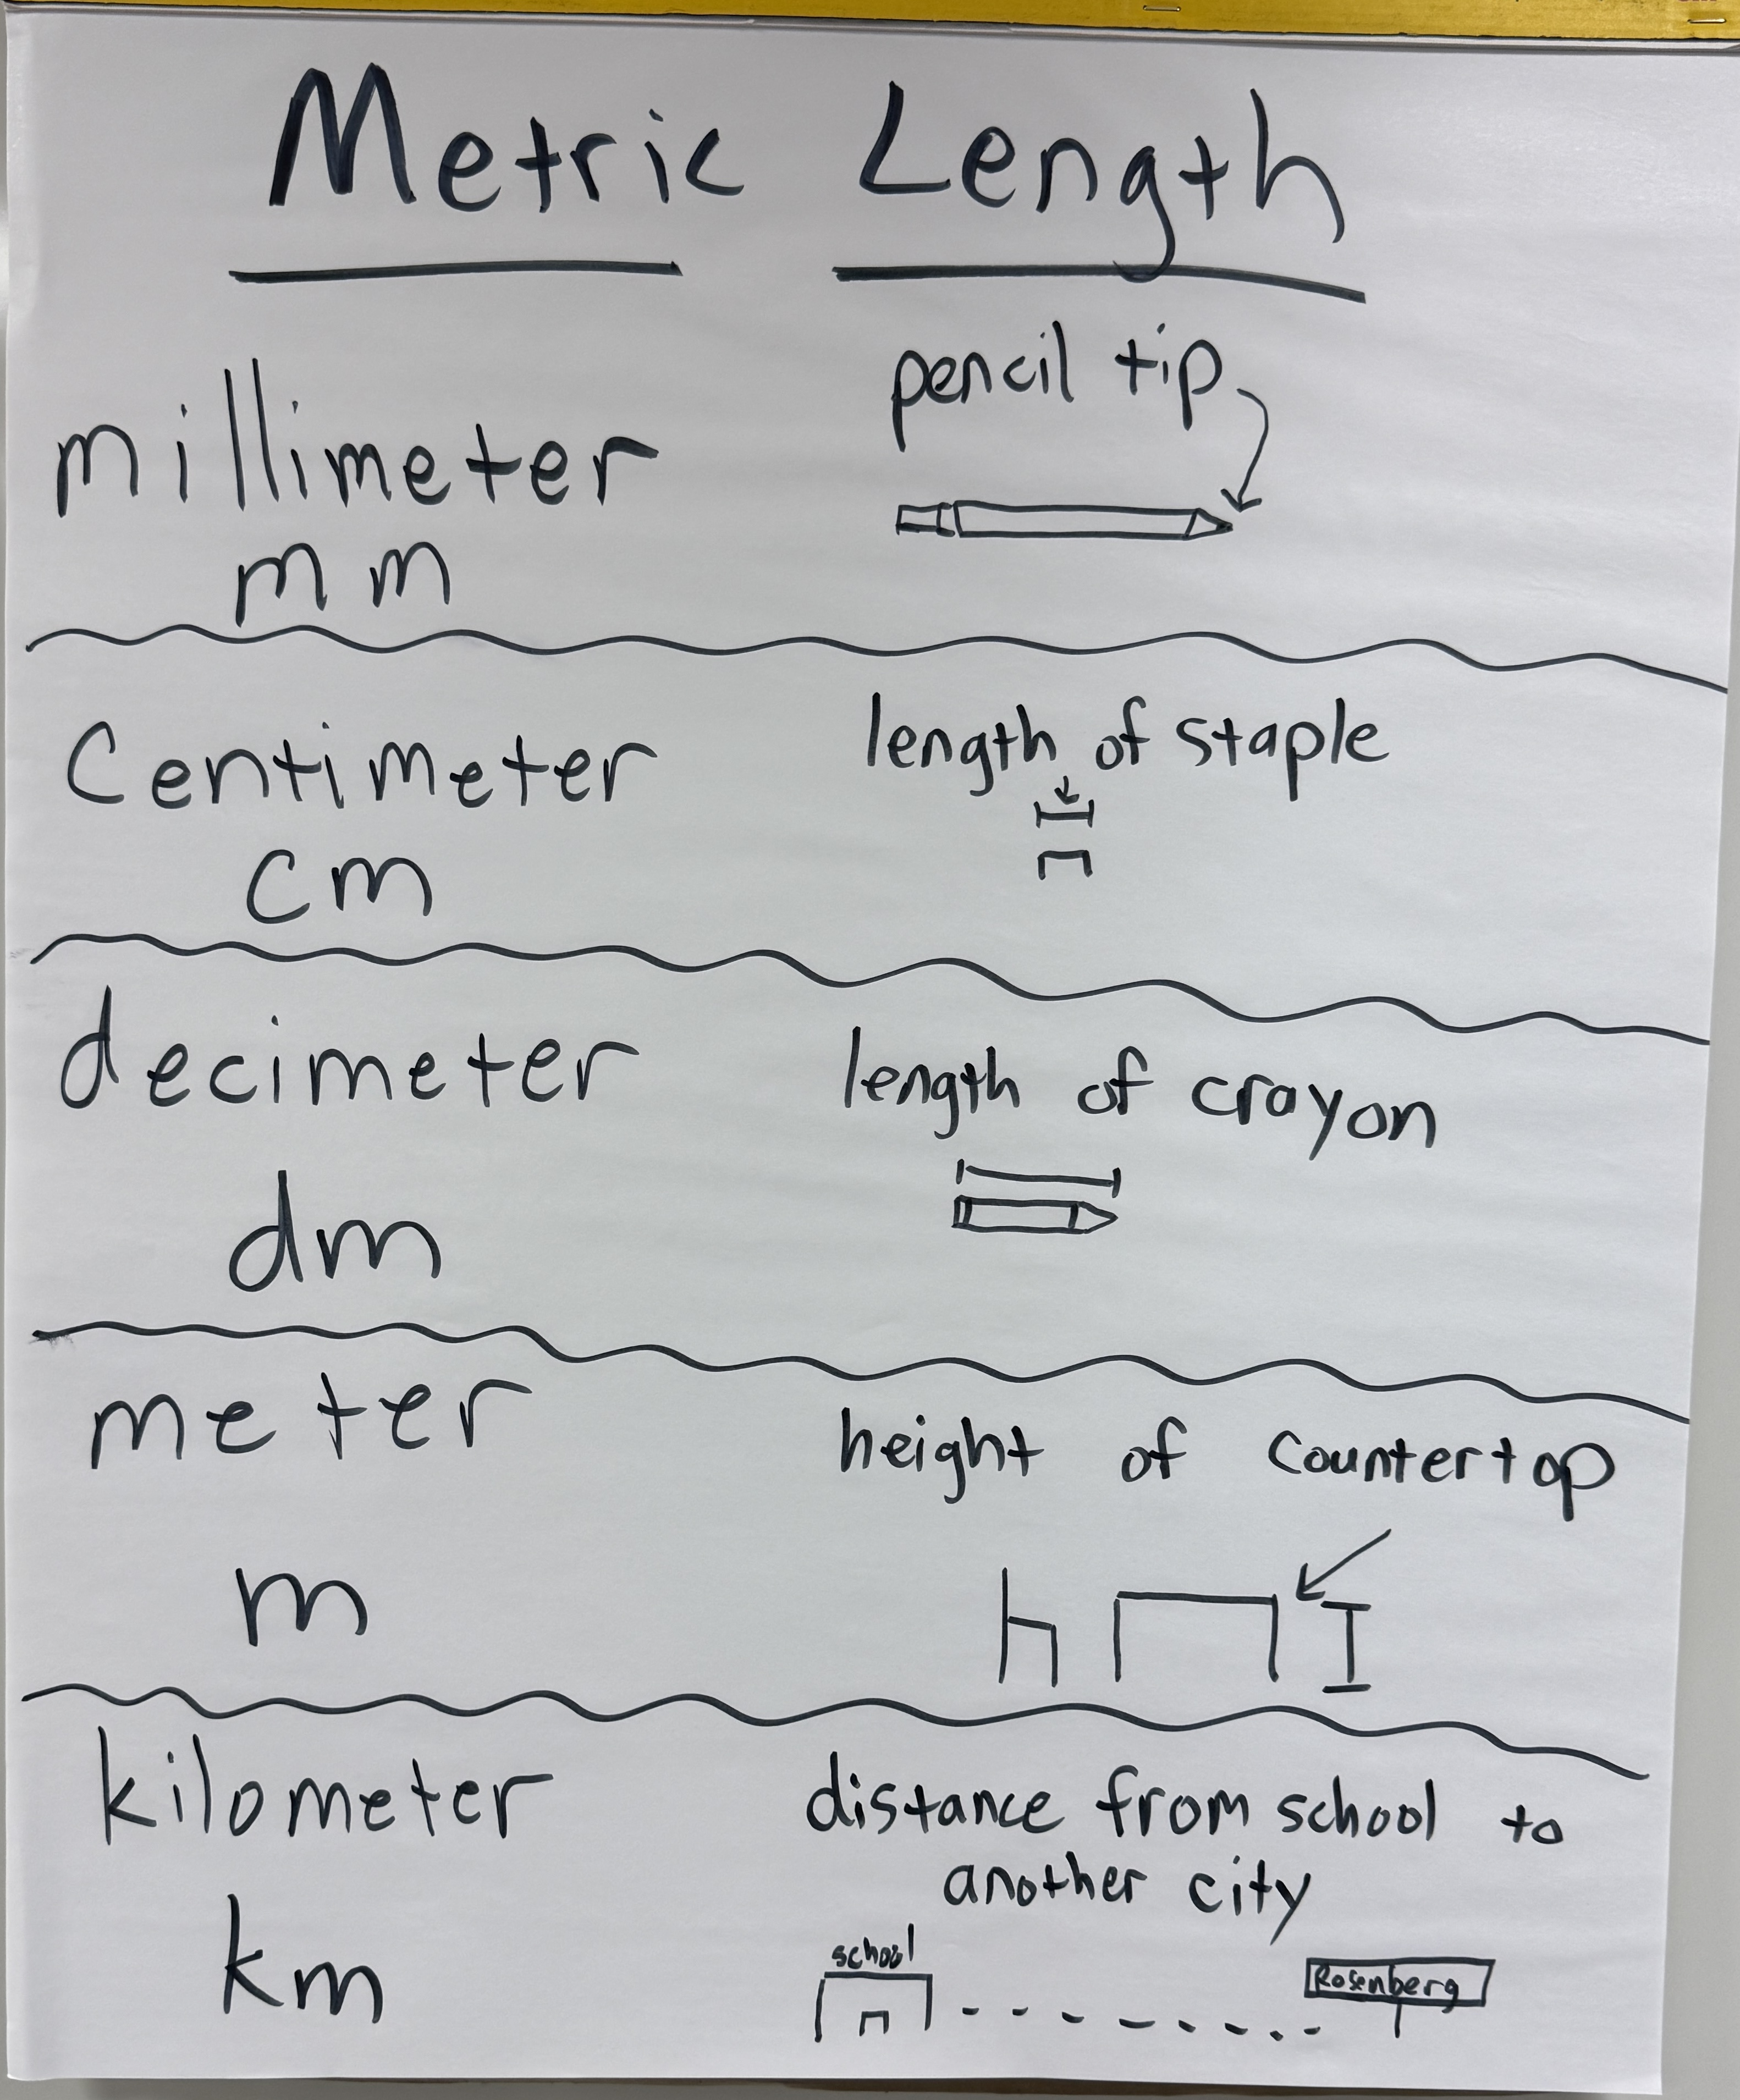 Metric Length
millimeter
mm
pencil tip
Centimeter
cm
length of staple
decimeter
dm
length of crayon
meter
m
height of countertop
kilometer
km
distance from school to
another city
school
Rosenberg